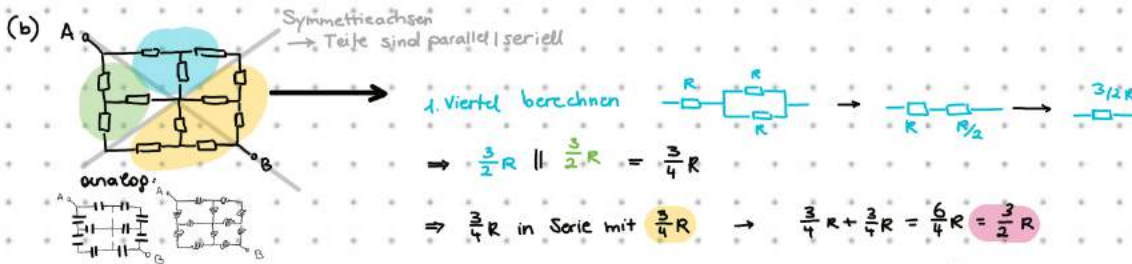 (b) A
Symmetrieachsen
→ Teile sind parallel | seriell
1. Viertel berechnen
R
R
R
→
R
R/2
→
3/2 R
⇒ 3/2 R || 3/2 R = 3/4 R
B
analog:
A
B
A
B
⇒ 3/4 R in Serie mit 3/4 R → 3/4 R + 3/4 R = 6/4 R = 3/2 R